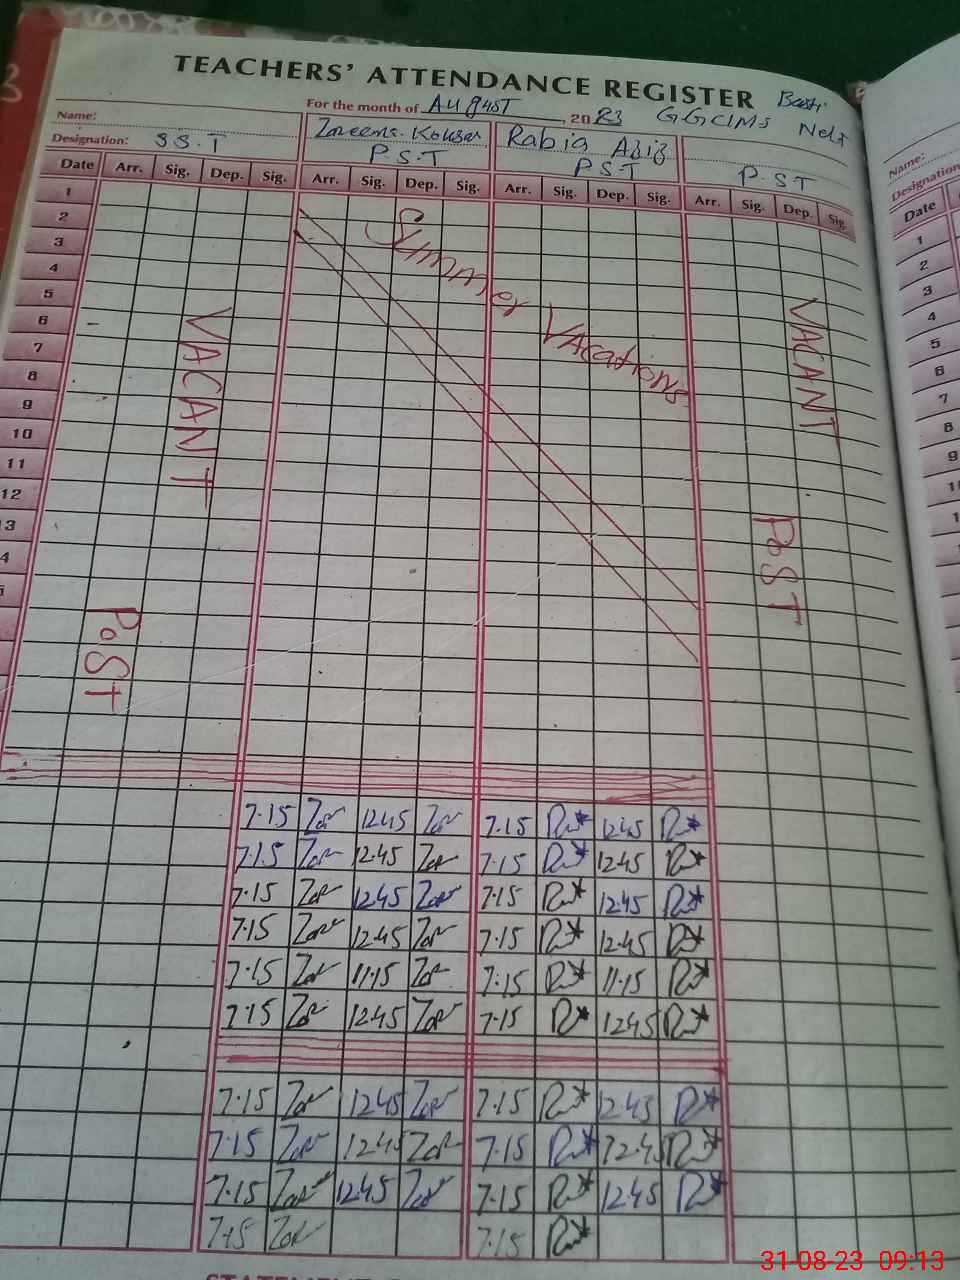 TEACHERS' ATTENDANCE REGISTER
For the month of August, 2023 GGCMS Basti
Name: Zareena Kousar Rabia Aziz
Designation: S S . T P . S . T P S T P . S T
Date Arr. Sig. Dep. Sig. Arr. Sig. Dep. Sig. Arr. Sig. Dep. Sig. Arr. Sig. Dep. Sig.
1
2
3
4
5
6
7
8
9
10
11
12
13
4
Summer Vacations
VACANT
PoST
VACANT
PoST
7.15 12.45 7.15 12.45
7.15 12.45 7.15 12.45
7.15 12.45 7.15 12.45
7.15 12.45 7.15 12.45
7.15 11.15 7.15 11.15
7.15 12.45 7.15 12.45
7.15 12.45 7.15 12.45
7.15 12.45 7.15 12.45
7.15 12.45 7.15 12.45
7.15 7.15
Name:
Designation
Date
1
2
3
4
5
6
7
8
9
31-08-23 09:13